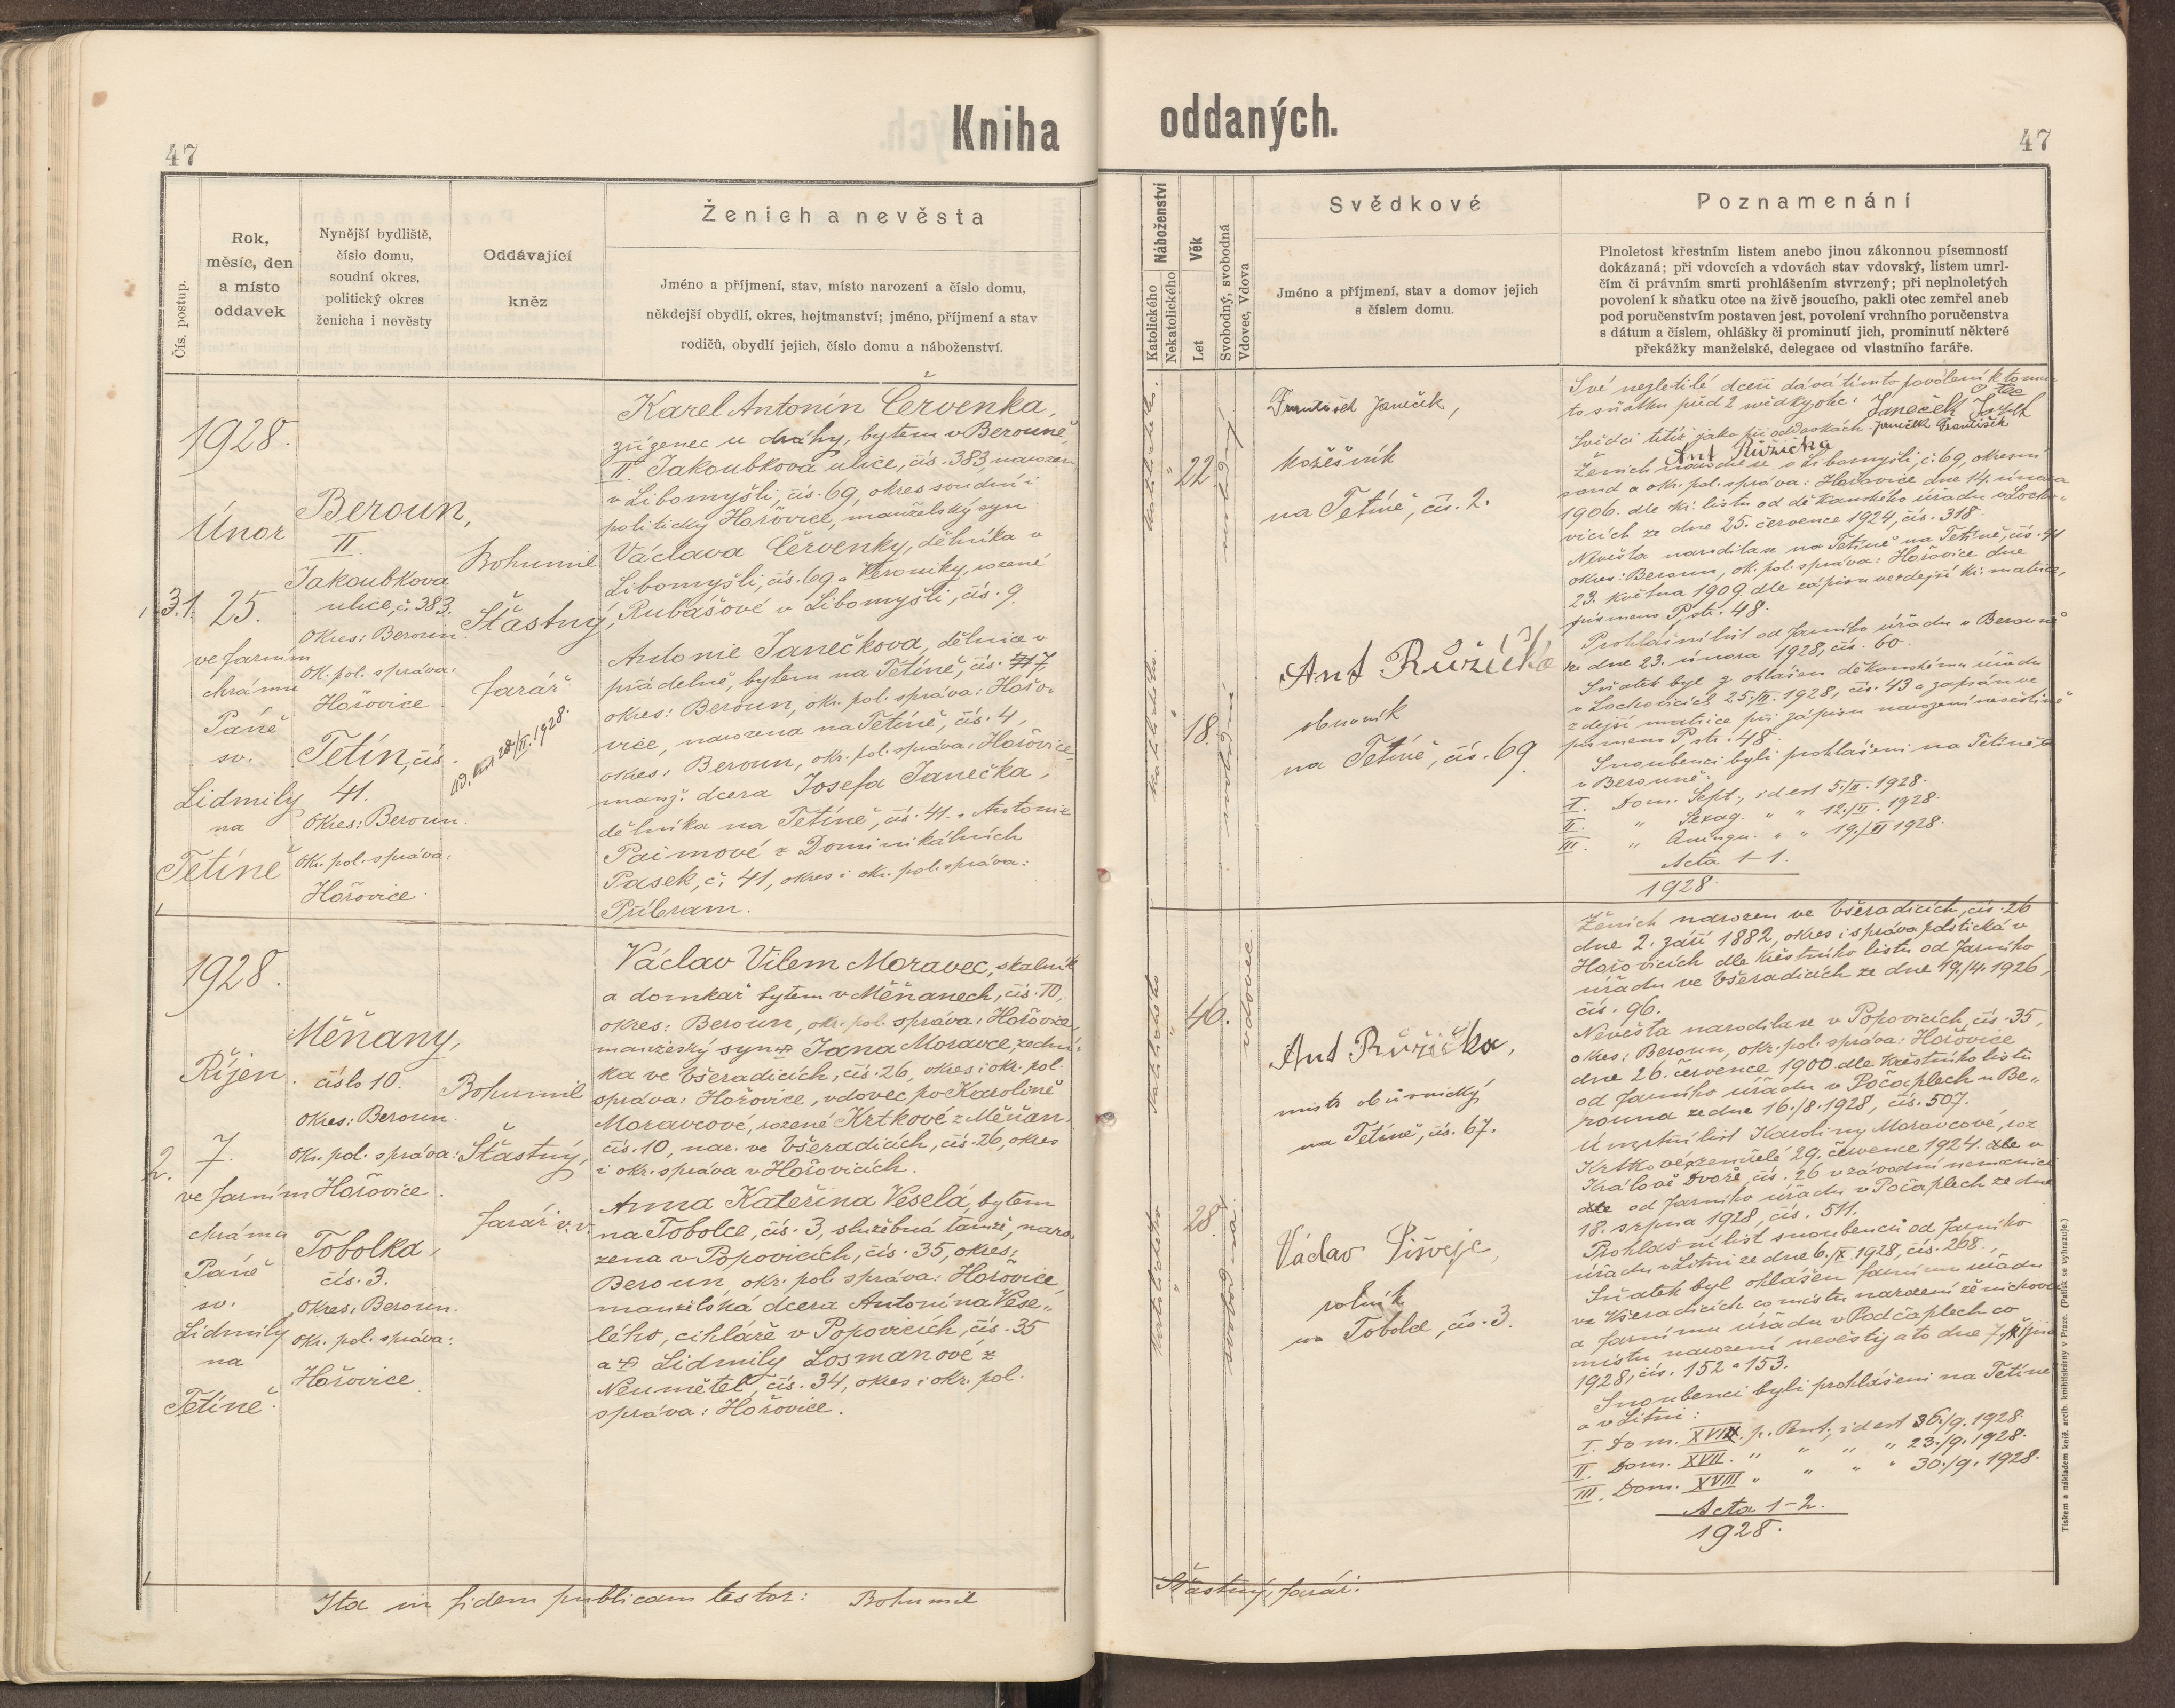 Kniha
oddaných.
47
47
Čís. postup.
Rok,
měsíc, den
a místo
oddavek
Nynější bydliště,
číslo domu,
soudní okres,
politický okres
ženicha i nevěsty
Oddávající
kněz
Ženich a nevěsta
Jméno a příjmení, stav, místo narození a číslo domu,
někdejší obydlí, okres, hejtmanství; jméno, příjmení a stav
rodičů, obydlí jejich, číslo domu a náboženství.
Náboženství
Katolického
Nekatolického
Věk
Let
Svobodný, svobodná
Vdovec, Vdova
Svědkové
Jméno a příjmení, stav a domov jejich
s číslem domu.
Poznamenání
Plnoletost křestním listem anebo jinou zákonnou písemností
dokázaná; při vdovcích a vdovách stav vdovský, listem umrl-
čím či právním smrti prohlášením stvrzený; při neplnoletých
povolení k sňatku otce na živě jsoucího, pakli otec zemřel aneb
pod poručenstvím postaven jest, povolení vrchního poručenstva
s dátum a číslem, ohlášky či prominutí jich, prominutí některé
překážky manželské, delegace od vlastního faráře.
1928.
Únor
25.
ve farním
chrámu
Páně
sv.
Lidmily
na
Tetíně
Beroun,
II
Jakoubkova
ulice, č. 383.
Okres: Beroun.
Ok. pol. správa:
Hořovice.
Tetín, čís.
41.
Okres: Beroun.
Ok. pol. správa:
Hořovice.
Bohumil
Šťastný,
farář
28/II. 1928.
Karel Antonín Červenka,
zřízenec u dráhy, bytem v Berouně
II Jakoubkova ulice, čís. 383, narozen
v Libomyšli, čís. 69, okres soudní i
politický Hořovice, manželský syn
Václava Červenky, dělníka v
Libomyšli, čís. 69 a Veroniky, rozené
Rubášové v Libomyšli, čís. 9.
Antonie Janečkova, dělnice v
přádelně, bytem na Tetíně, čís.
okres: Beroun, ok. pol. správa: Hořo-
vice, narozena na Tetíně, čís. 4,
okres: Beroun, ok. pol. správa: Hořovice
manž. dcera Josefa Janečka,
dělníka na Tetíně, čís. 41. a Antonie
Paimové z Dominikálních
Pasek, č. 41, okres i ok. pol. správa:
Příbram.
katolického.
22
svobodný
katolického.
18.
svobodná
František Janeček,
na Tetíně, čís. 2.
Ant Růžička
obuvník
na Tetíně, čís. 69
Své nezletilé dceři dává tímto povolení k tomu-
to sňatku před 2 svědky otec: Janeček Josef
otec
Svědci titíž jako při oddavkách. Janeček František
Ant Růžička
Ženich narodil se v Libomyšli, č. 69, okresní
soud a ok. pol. správa: Hořovice dne 14. února
1906. dle kř. listu od děkanského úřadu v Locho-
vicích ze dne 25. července 1924, čís. 318.
Nevěsta narodila se na Tetíně na Tetíně, čís. 41
okres: Beroun, ok. pol. správa: Hořovice dne
23. května 1909. dle zápisu ve zdejší kř. matrice,
písmeno P, str. 48.
Prohlášní list od farního úřadu v Berouně
ze dne 23. února 1928, čís. 60.
Sňatek byl ohlášen děkanskému úřadu
v Lochovicích 25./II. 1928, čís. 43 a zapsán ve
zdejší matrice při zápisu narození nevěstině
písmeno P, str. 48.
Snoubenci byli prohlášeni na Tetíně a
v Berouně:
I. Dom. Sept., id est 5./II. 1928.
II. " Sexag. " " 12./II. 1928.
III. " Quinqu. " " 19./II 1928.
Acta 1-1.
1928.
1928.
Říjen.
2.
7.
ve farním
chrámu
Páně
sv.
Lidmily
na
Tetíně.
Měňany,
číslo 10.
Okres: Beroun.
Ok. pol. správa:
Hořovice.
Tobolka,
čís. 3.
Okres: Beroun.
Ok. pol. správa:
Hořovice
Bohumil
Šťastný,
farář v.v.
Václav Vilem Moravec, skalník
a domkář bytem v Měňanech, čís. 10,
okres: Beroun, okr. pol. správa: Hořovice,
manželský syn Jana Moravce, zední-
ka ve Všeradicích, čís. 26, okres i okr. pol.
správa: Hořovice, vdovec po Karolině
Moravcové, rozené Krtkové z Měňan
čís. 10, nar. ve Všeradicích, čís. 26, okres
i okr. správa v Hořovicích.
Anna Kateřina Veselá, bytem
na Tobolce, čís. 3, služebná tamže, naro-
zena v Popovicích, čís. 35, okres:
Beroun, okr. pol. správa: Hořovice,
manželská dcera Antonína Vese-
lého, cihláře v Popovicích, čís. 35
a Lidmily Losmanové z
Neumětel, čís. 34, okres i okr. pol.
správa: Hořovice.
katolického
46.
vdovec
katolického
28.
svobodná
Ant Růžička,
mistr obuvnický
na Tetíně, čís. 67.
Václav
rolník
na Tobolce, čís. 3.
Ženich narozen ve Všeradicích, čís. 26
dne 2. září 1882, okres i správa politická v
Hořovicích dle křestního listu od farního
úřadu ve Všeradicích ze dne 19./4. 1926,
čís. 96.
Nevěsta narodila se v Popovicích, čís. 35,
okres: Beroun, okr. pol. správa: Hořovice
dne 26. července 1900 dle křestního listu
od farního úřadu v Počaplech u Be-
rouna ze dne 16./8. 1928, čís. 507.
Úmrtní list Karoliny Moravcové, roz
Krtkové zemřelé 29. července 1924. v
Králově Dvoře, čís. 26 v závodní nemocnici
od farního úřadu v Počaplech ze dne
18. srpna 1928, čís. 511.
Prohlášní list snoubenců od farního
úřadu v Litni ze dne 6./X 1928, čís. 268.,
Sňatek byl ohlášen farnímu úřadu
ve Všeradicích co místu narození ženichova
a farnímu úřadu v Počaplech co
místu narození nevěsty a to dne 7. října
1928, čís. 152 a 153.
Snoubenci byli prohlášeni na Tetíně
a v Litni:
I. Dom. p. Pent., id est 1928.
II. Dom. XVII. " " " " 23./9. 1928.
III. Dom. XVIII " " " " 30./9. 1928.
Acta 1-2.
1928.
Ita in fidem publicam testor: Bohumil
Šťastný, farář.
Tiskem a nákladem kníž. arcib. knihtiskárny v Praze. (Padělk se vyhrazuje.)